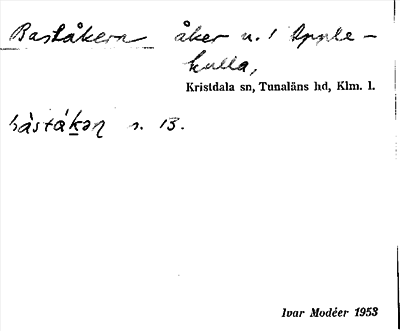 Baståkern åker u. 1 Apple-
kulla,
Kristdala sn, Tunaläns hd, Klm. l.
s. 13.
Ivar Modéer 1953